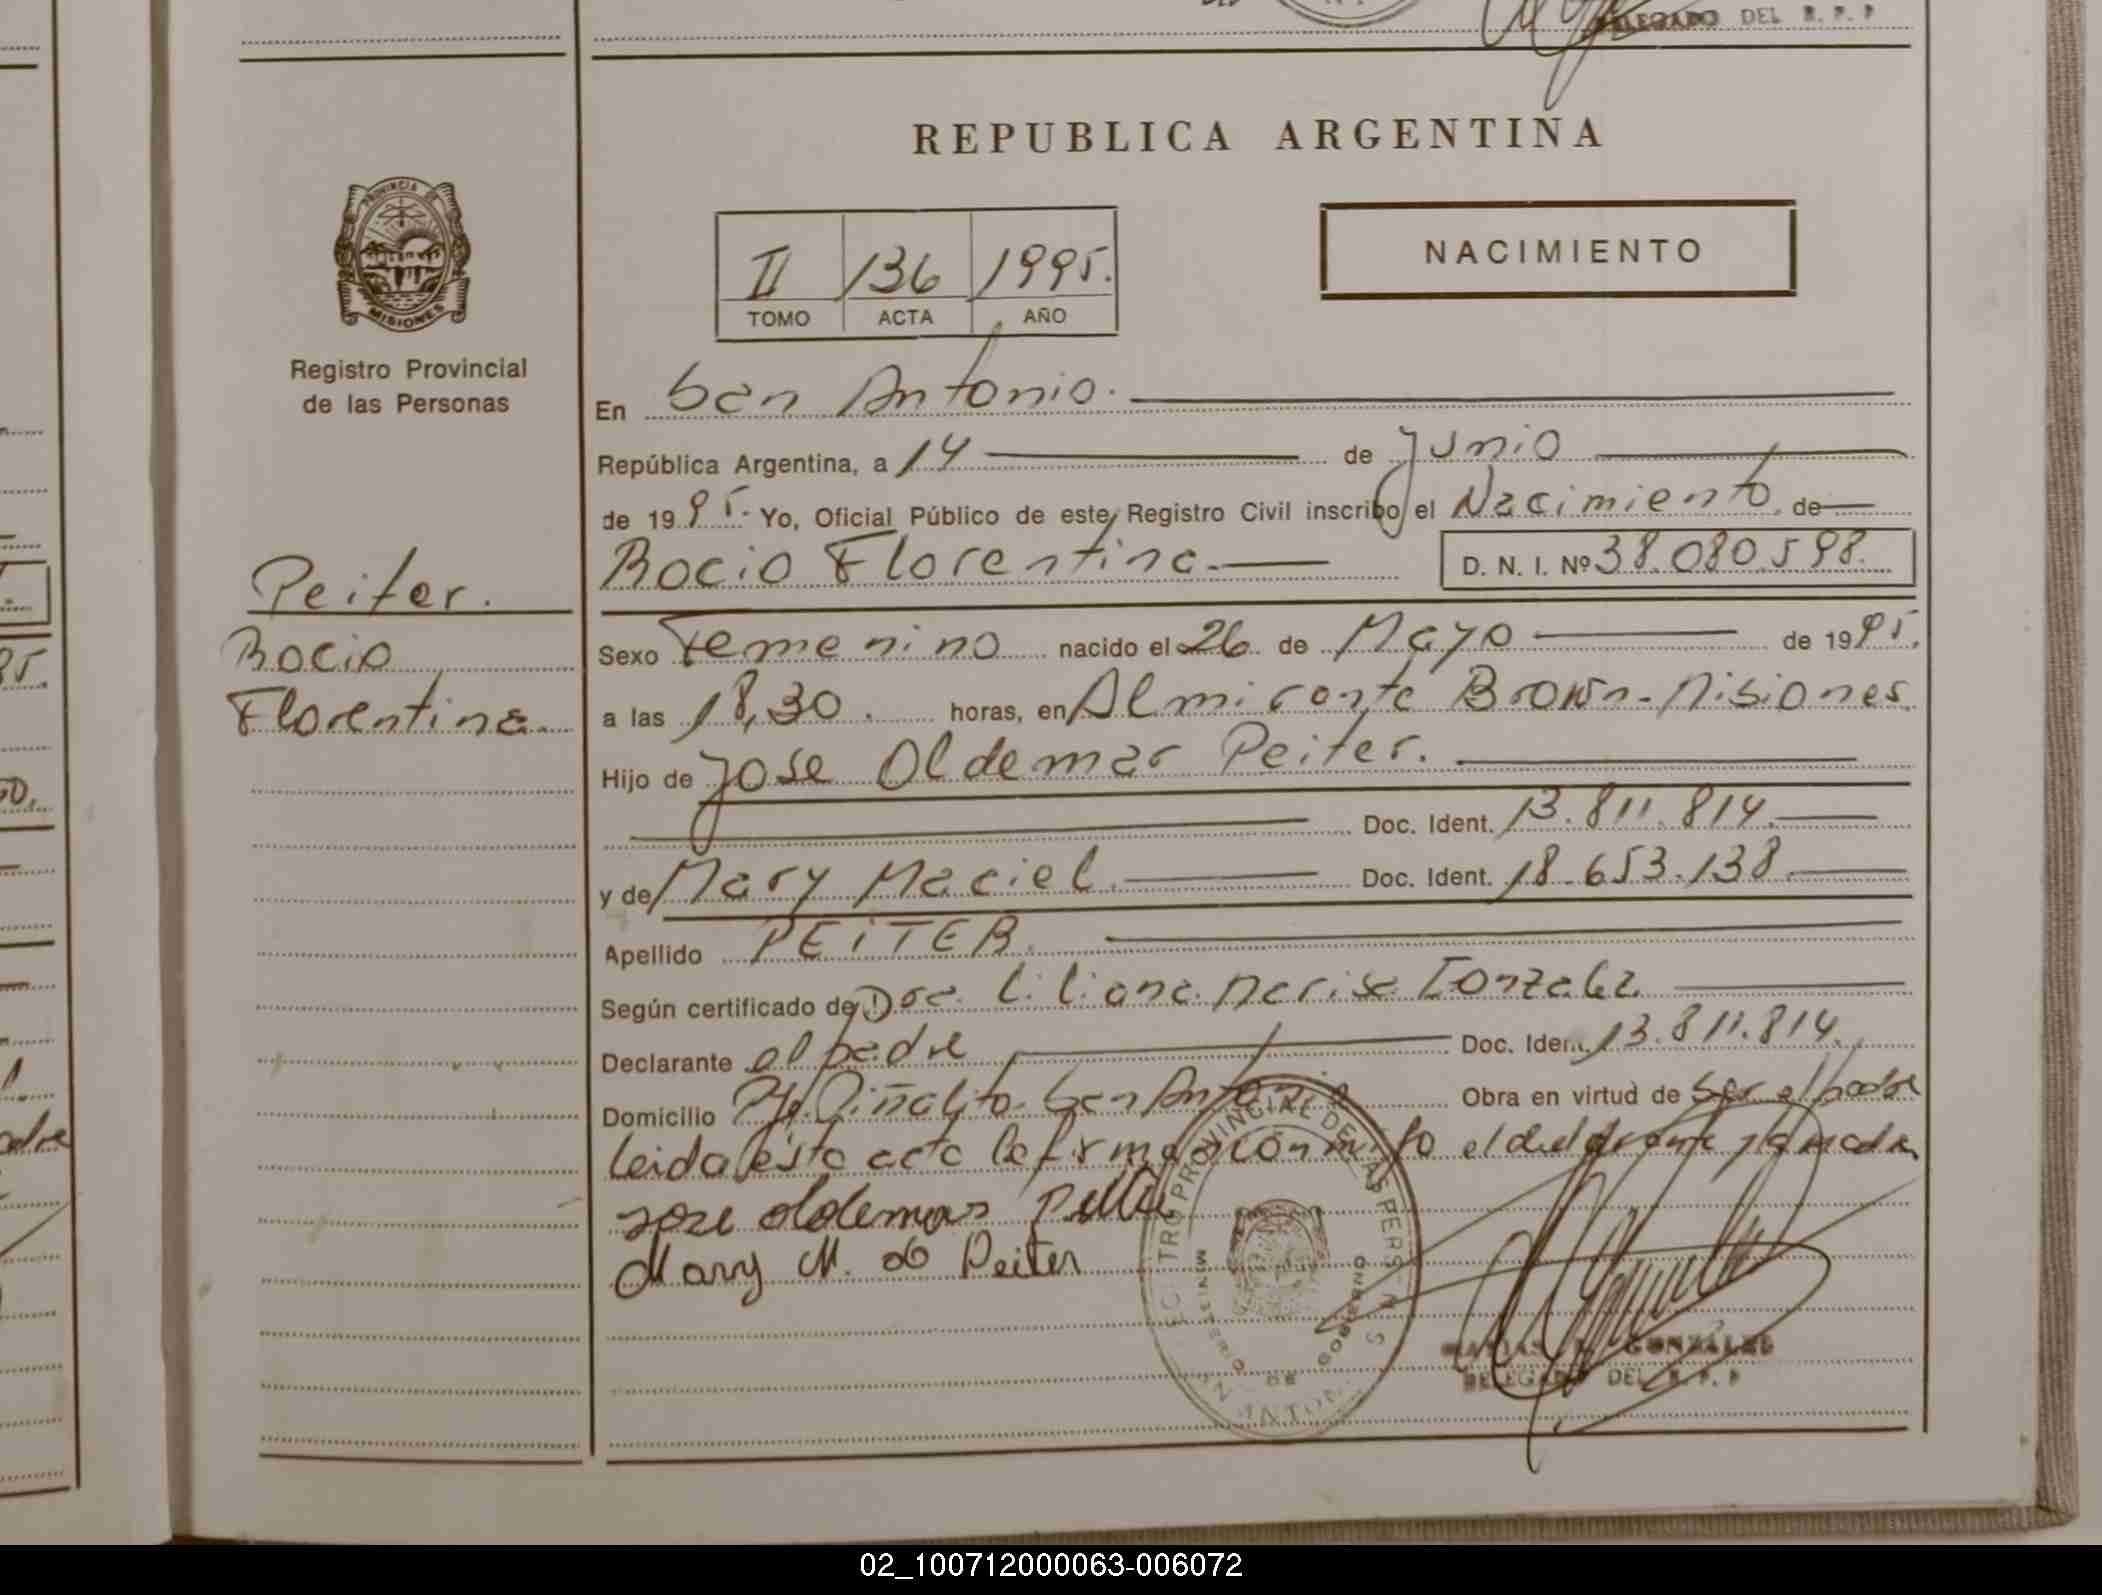 DELEGADO DEL R. P. P
REPUBLICA ARGENTINA
PROVINCIA DE
MISIONES
Registro Provincial
de las Personas
II 136 1995.
TOMO ACTA AÑO
NACIMIENTO
En San Antonio.
República Argentina, a 14 de Junio
de 1995. Yo, Oficial Público de este Registro Civil inscribo el Nacimiento. de
Rocio Florentina. D. N. I. Nº 38.080.598.
Peiter.
Rocio
Florentina.
Sexo Femenino nacido el 26 de Mayo de 1995.
a las 18,30. horas, en Almirante Brown-Misiones.
Hijo de Jose Oldemar Peiter.
Doc. Ident. 13.811.814.
y de Mary Maciel. Doc. Ident. 18.653.138.
Apellido PEITER.
Según certificado de Dra. Liliana Marisa Gonzalez
Declarante el padre Doc. Ident. 13.811.814.
Domicilio Pje. Piñalito San Antonio Obra en virtud de Ser el padre
Leida ésta acta la firma conmigo el declarante y la madre
Jose oldemar Peiter
Mary M. de Peiter
REGISTRO PROVINCIAL DE LAS PERSONAS
MINISTERIO DE GOBIERNO
GONZALEZ
DELEGADO DEL R. P. P
02_100712000063-006072